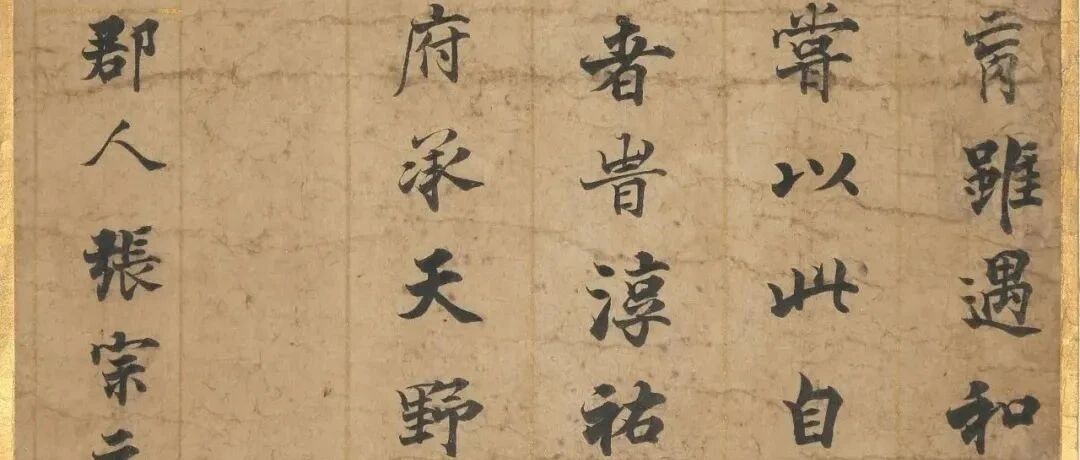 肓雖遇和
嘗以此自
者旹淳祐
府承天野
郡人張宗